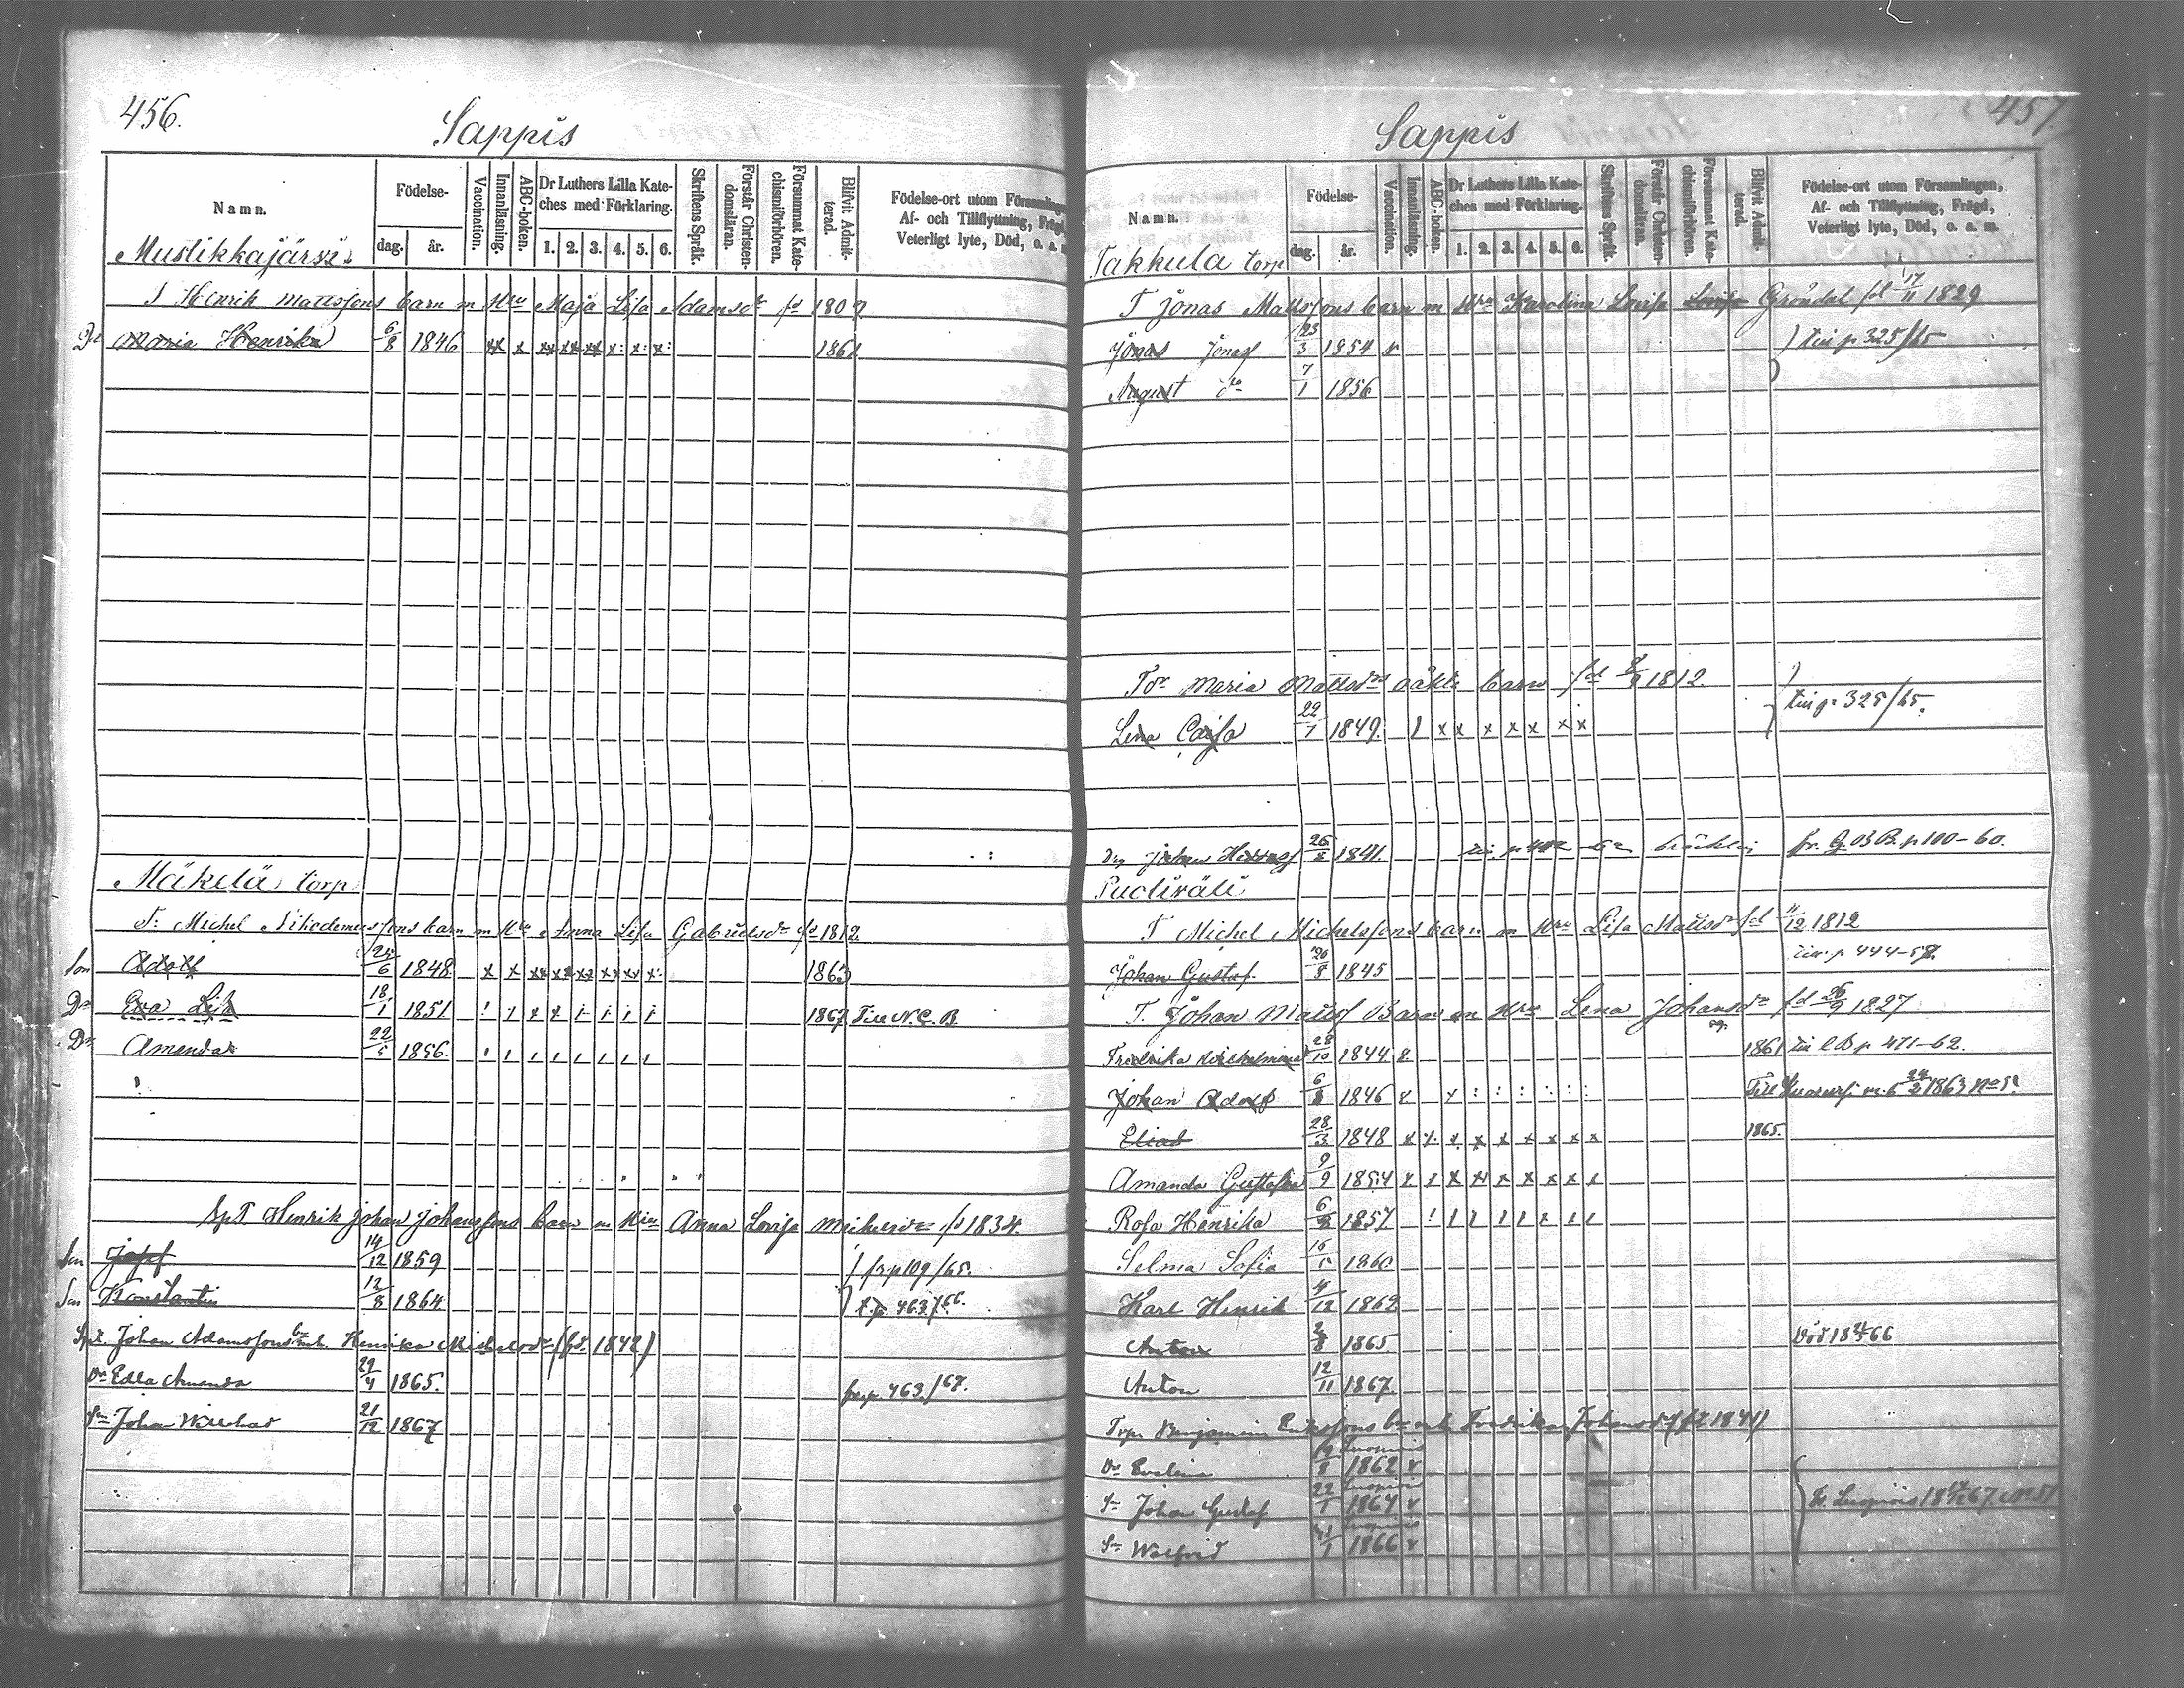 456.
Sappis
Namn.
Födelse-
dag.
år.
Vaccination.
Innanläsning.
ABC-boken.
Dr Luthers Lilla Kate-
ches med Förklaring.
1. 2. 3. 4. 5. 6.
Skriftens Språk.
Förstår Christen-
domsläran.
Försummat Kate-
chismiförhören.
Blifvit Admit-
terad.
Födelse-ort utom Församlingen,
Af- och Tillflyttning, Frägd,
Veterligt lyte, Död, o. a. m.
Mustikkajärvi
T Henrik Mattssons barn m Hru Maja Lisa Adamsdr fd 1807
Dr Maria Henrika 6/8 1846 xx x xx xx xx x: x: x: 1861
Mäkelä torp
T: Michel barn m Hru Anna Lisa Gabrielsdr fd 1812.
Son Adolf 24/6 1848 x x xx xx xx xx xx x: 1863
Dr Eva Lisa 18/1 1851 1867 Till N.C.B.
Dr Amanda 22/5 1856.
SpT Henrik Johan Johanssons barn m Hru Anna Lovisa Michelsdr fd 1834.
Son Josef 14/12 1859 fr p 109/65.
Son Konstantin 12/8 1864 t. p. 463/66.
Spt. Johan Adamssons bn m h. Henrika Michelsdr (fd. 1842)
Dr Edla Amanda 29/4 1865. fr p. 463/67.
Sn Johan Wilehad 21/12 1867
457.
Sappis
Namn.
Födelse-
dag.
år.
Vaccination.
Innanläsning.
ABC-boken.
Dr Luthers Lilla Kate-
ches med Förklaring.
1. 2. 3. 4. 5. 6.
Skriftens Språk.
Förstår Christen-
domsläran.
Försummat Kate-
chismiförhören.
Blifvit Admit-
terad.
Födelse-ort utom Församlingen,
Af- och Tillflyttning, Frägd,
Veterligt lyte, Död, o. a. m.
Takkula torp
T Jonas Mattssons barn m Hru Karolina Lovisa Lovisa Gröndal fd 17/11 1829
Jonas Jonass 23/3 1854 till p 325/65
August do 7/1 1856
Tdr Maria Mattsdrs oäkta barn fd 1812.
Lena Caisa 22/1 1849. x x x x x x x till p. 325/65.
Drg Johan 26 1841. fr. G. B. p 100-60.
T Michel Michelssons barn m Hru Lisa Mattsdr fd 11/12 1812
Johan Gustaf 20/8 1845 till p 444-58.
T. Johan Matts Barn m Hru Lena Johansdr fd 26/9 1827
Fredrika Wilhelmina 28/10 1844 1861 till p 471-62.
Johan Adolf 6 1846 1863 No
Elias 28/3 1848 x x x x x x x x x 1865.
Amanda Gustafva 9/9 1854
Rosa Henrika 6 1857
Selma Sofia 16 1860
Karl Henrik 4/12 1862
Anton 2/8 1865. Död 66
Anton 12/11 1867.
Torp. Benjamin bn m h Fredrika Johansdr (fd 1841)
Dr Evelina 8 1862
Sn Johan Gustaf 22/1 1864
Sn Walfrid 1 1866